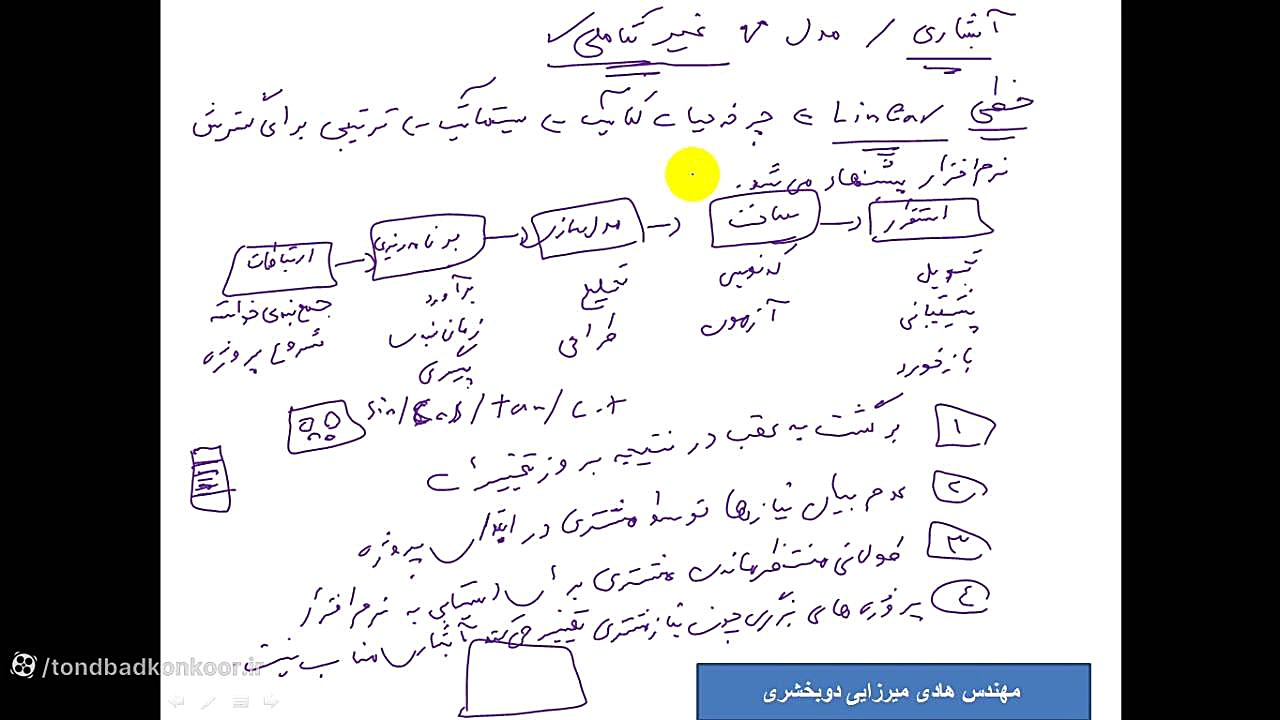 آبشاری / مدل ۲ غیر تکاملی
خطی Linear ← چرخه حیات کلاسیک ← سیستماتیک ← ترتیبی برای گسترش
نرم افزار پیشنهاد می شد.
ارتباطات → برنامه ریزی → مدل سازی → ساخت → استقرار
جمع بندی خواسته برآورد تحلیل کدنویسی تحویل
شروع پروژه زمان بندی طراحی آزمون پشتیبانی
پیگیری بازخورد
sin/cos/tan/cot
۱ برگشت به عقب در نتیجه بروز تغییرات
۲ عدم بیان نیازها توسط مشتری در ابتدای پروژه
۳ طولانی منتظر ماندن مشتری برای دستیابی به نرم افزار
۴ پروژه های بزرگ چون نیاز مشتری تغییر می کند آبشاری مناسب نیست.
/tondbadkonkoor.ir
مهندس هادی میرزایی دوبخشری